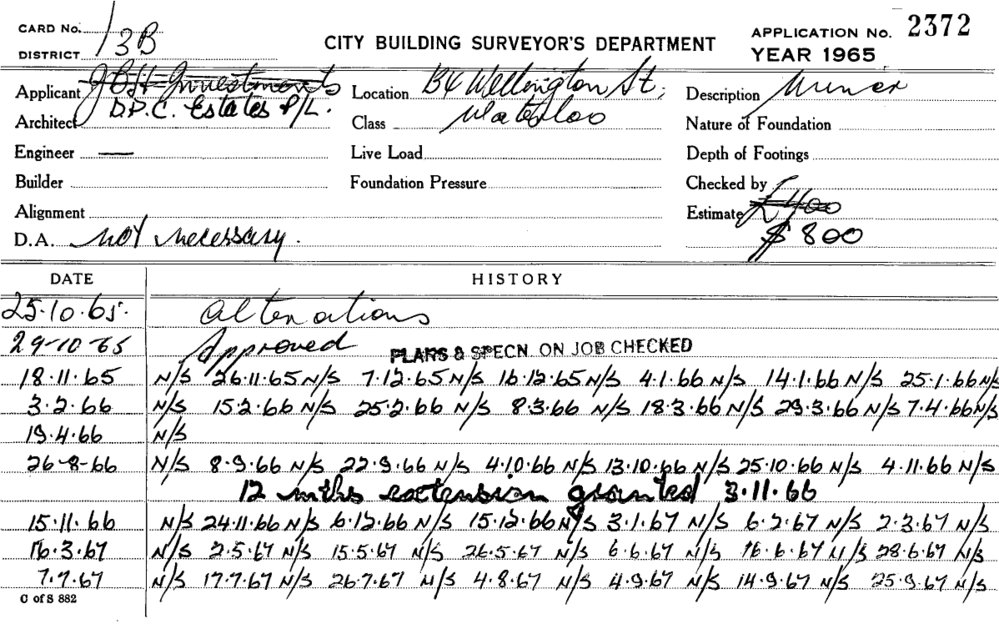 CARD No. 13B
DISTRICT
CITY BUILDING SURVEYOR'S DEPARTMENT
APPLICATION No. 2372
YEAR 1965
Applicant JBH Investments
D.P.C. Estates P/L.
Location 134 Wellington St,
Waterloo
Description Minor
Architect
Class
Nature of Foundation
Engineer —
Live Load
Depth of Footings
Builder
Foundation Pressure
Checked by
Alignment
Estimate £400
$ 800
D.A. Not necessary.
DATE HISTORY
25.10.65. Alterations
29-10-65 Approved PLANS & SPECN. ON JOB CHECKED
18.11.65 N/S 26.11.65 N/S 7.12.65 N/S 16.12.65 N/S 4.1.66 N/S 14.1.66 N/S 25.1.66 N/S
3.2.66 N/S 15.2.66 N/S 25.2.66 N/S 8.3.66 N/S 18.3.66 N/S 29.3.66 N/S 7.4.66 N/S
19.4.66 N/S
26-8-66 N/S 8.9.66 N/S 22.9.66 N/S 4.10.66 N/S 13.10.66 N/S 25.10.66 N/S 4.11.66 N/S
12 mths extension granted 3.11.66
15.11.66 N/S 24.11.66 N/S 6.12.66 N/S 15.12.66 N/S 3.1.67 N/S 6.2.67 N/S 2.3.67 N/S
16.3.67 N/S 2.5.67 N/S 15.5.67 N/S 26.5.67 N/S 6.6.67 N/S 16.6.67 N/S 28.6.67 N/S
7.7.67 N/S 17.7.67 N/S 26.7.67 N/S 4.8.67 N/S 4.9.67 N/S 14.9.67 N/S 25.9.67 N/S
C of S 882